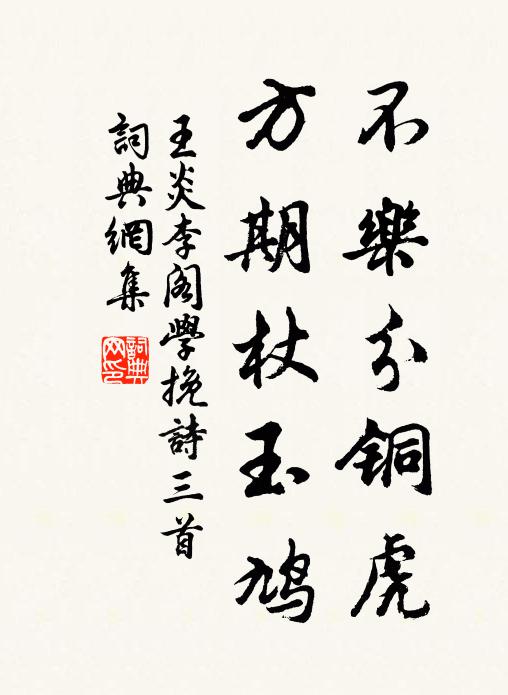 不樂分銅虎
方期杖玉鳩
王炎李閣學挽詩三首
詞典網集
詞典網印